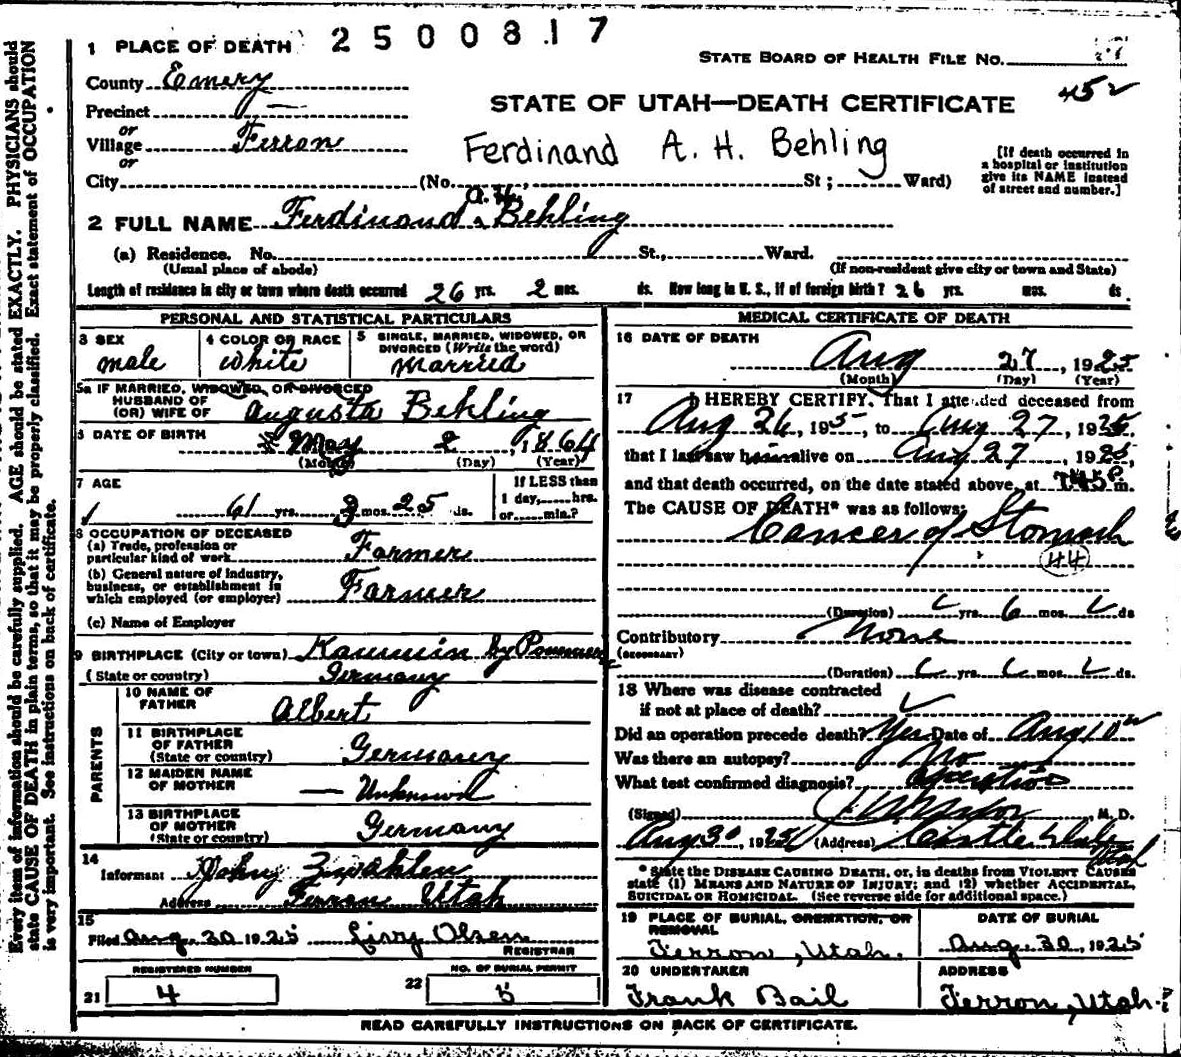 2500817
1 PLACE OF DEATH
STATE BOARD OF HEALTH FILE NO.
County Emery
452
Precinct
STATE OF UTAH—DEATH CERTIFICATE
or
Village Ferron
Ferdinand A. H. Behling
or
[If death occurred in a hospital or institution give its NAME instead of street and number.]
City (No. St; Ward)
A. H.
2 FULL NAME Ferdinand Behling
(a) Residence. No. St., Ward.
(Usual place of abode) (If non-resident give city or town and State)
Length of residence in city or town where death occurred 26 yrs. 2 mos. ds. How long in U. S., if of foreign birth? 26 yrs. mos. ds.
PERSONAL AND STATISTICAL PARTICULARS
3 SEX
male
4 COLOR OR RACE
white
5 SINGLE, MARRIED, WIDOWED, OR DIVORCED (Write the word)
married
5a IF MARRIED, WIDOWED, OR DIVORCED
HUSBAND OF
(OR) WIFE OF Augusta Behling
6 DATE OF BIRTH
May 2, 1864
(Month) (Day) (Year)
7 AGE
61 yrs. 3 mos. 25 ds.
If LESS than
1 day, hrs.
or min.?
8 OCCUPATION OF DECEASED
(a) Trade, profession or
particular kind of work Farmer
(b) General nature of industry,
business, or establishment in
which employed (or employer) Farmer
(c) Name of Employer
9 BIRTHPLACE (City or town)
(State or country) Germany
PARENTS
10 NAME OF
FATHER Albert
11 BIRTHPLACE
OF FATHER
(State or country) Germany
12 MAIDEN NAME
OF MOTHER — Unknown
13 BIRTHPLACE
OF MOTHER
(State or country) Germany
14
Informant John Zwahlen
Address Ferron Utah
15
Filed Aug. 30 1925 Livy Olsen
REGISTRAR
REGISTERED NUMBER
21 4
NO. OF BURIAL PERMIT
22 5
MEDICAL CERTIFICATE OF DEATH
16 DATE OF DEATH
Aug 27, 1925
(Month) (Day) (Year)
17 I HEREBY CERTIFY, That I attended deceased from
Aug 26, 1925, to Aug 27, 1925,
that I last saw him alive on Aug 27 1925,
and that death occurred, on the date stated above, at 7.45 P m.
The CAUSE OF DEATH* was as follows:
Cancer of Stomach
44
(Duration) yrs. 6 mos. ds
Contributory None
(SECONDARY)
(Duration) yrs. mos. ds.
18 Where was disease contracted
if not at place of death?
Did an operation precede death? Yes Date of Aug 10
Was there an autopsy? No
What test confirmed diagnosis? operation
(Signed) M. D.
Aug 30, 1925 (Address) Castle Dale
Utah
* State the DISEASE CAUSING DEATH, or, in deaths from VIOLENT CAUSES
state (1) MEANS AND NATURE OF INJURY; and (2) whether ACCIDENTAL,
SUICIDAL OR HOMICIDAL. (See reverse side for additional space.)
19 PLACE OF BURIAL, CREMATION, OR REMOVAL
Ferron, Utah.
DATE OF BURIAL
Aug. 30, 1925
20 UNDERTAKER
Frank Bail
ADDRESS
Ferron, Utah.
READ CAREFULLY INSTRUCTIONS ON BACK OF CERTIFICATE.
Every item of information should be carefully supplied. AGE should be stated EXACTLY. PHYSICIANS should
state CAUSE OF DEATH in plain terms, so that it may be properly classified. Exact statement of OCCUPATION
is very important. See instructions on back of certificate.